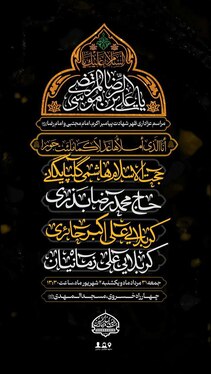 السلام علیک
یا علی بن موسی الرضا المرتضی
مراسم عزاداری ظهر شهادت پیامبر اکرم، امام مجتبی و امام رضا
حجت الاسلام هاشم گلپایگانی
حاج محمدرضا بذری
کربلایی علی اکبر حائری
کربلایی علی زمانیان
جمعه ۳۱ مرداد ماه و یکشنبه ۲ شهریور ماه، ساعت ۱۳:۳۰
چهارراه خسروی، مسجد المهدی